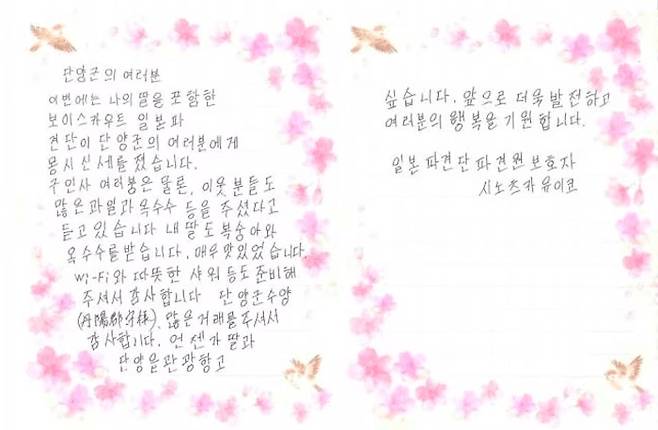 단양군의 여러분
이번에는 나의 딸을 포함한
보이스카우트 일본파
견단이 단양군의 여러분에게
몽시 신세를 졌습니다.
구인사 여러붕은 물론, 이웃 분들도
많은 과일과 옥수수 등을 주셨다고
듣고 있습니다 내 딸도 복숭아와
옥수수를 받습니다. 매우 맛있었습니다.
Wi-Fi와 따뜻한 샤워 등도 준비해
주셔서 감사합니다 단양군수양
(丹陽郡守様). 많은 거래를 주셔서
감사합니다. 언젠가 딸과
단양을 관광항고
싶습니다. 앞으로 더욱 발전하고
여러분의 행복을 기원합니다.
일본 파견단 파견원 보호자
시노츠카 유이코